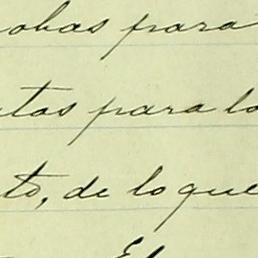 obas para
tas para lo
to, de lo que
El